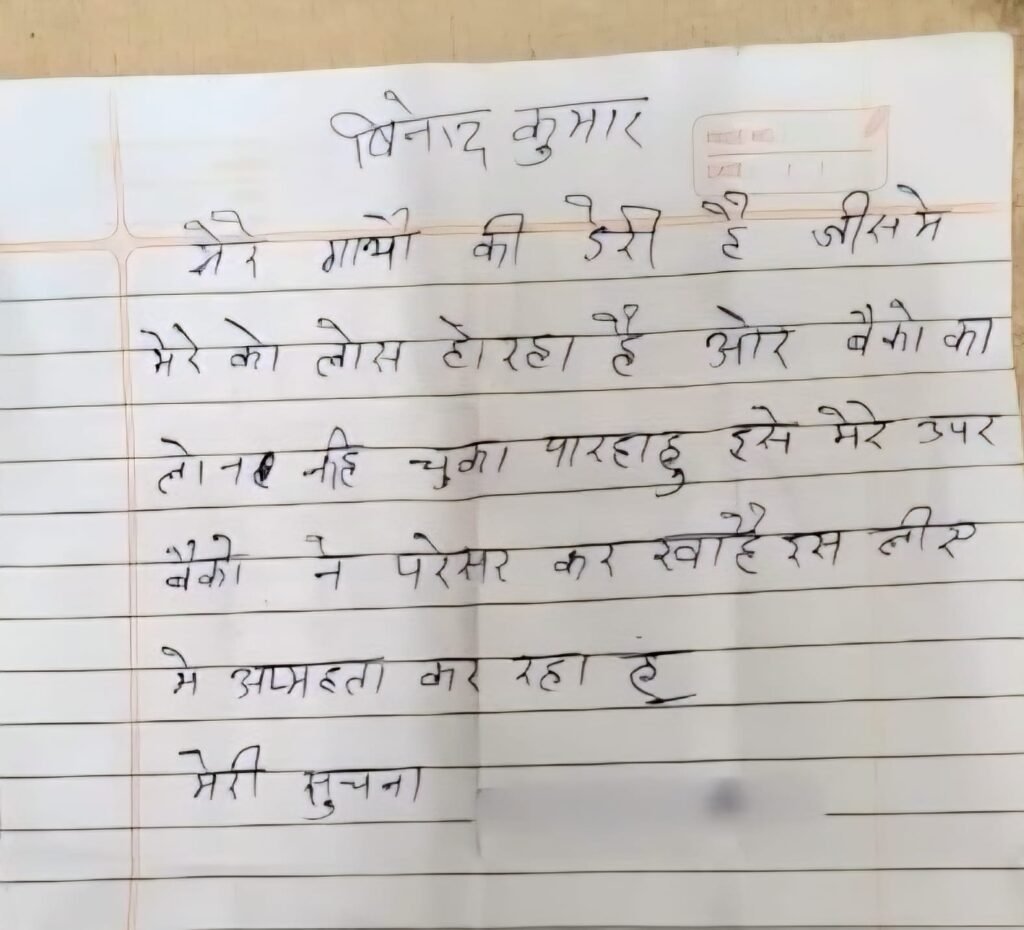 बिनोद कुमार
मेरे गायो की डेरी है जीसमे
मेरे को लोस हो रहा है ओर बैको का
लोन नहि चुका पारहाहु इसे मेरे उपर
बैको ने परेसर कर रखाहै इस लीए
मे आत्महता कर रहा हूं
मेरी सुचना